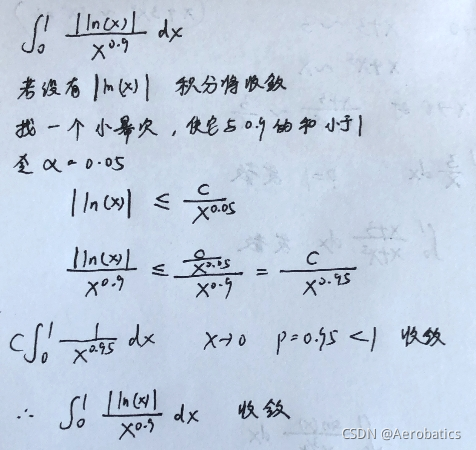 ∫₀¹ |ln(x)| / x^0.9 dx
若没有 |ln(x)| 积分将收敛
找一个小幂次，使它与0.9的和小于1
α = 0.05
|ln(x)| ≤ C / x^0.05
|ln(x)| / x^0.9 ≤ (C / x^0.05) / x^0.9 = C / x^0.95
C∫₀¹ 1 / x^0.95 dx x→0 p=0.95<1 收敛
∴ ∫₀¹ |ln(x)| / x^0.9 dx 收敛
CSDN @Aerobatics